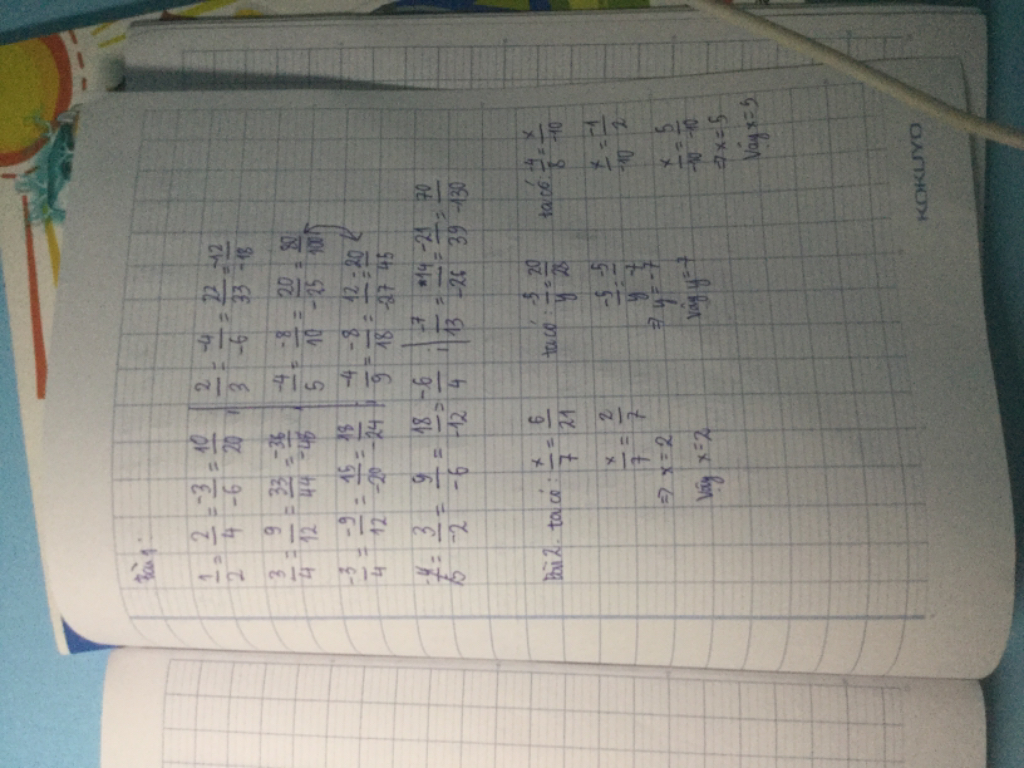 Bài 1:
1/2 = 2/4 = -3/-6 = 10/20 ; 2/3 = -4/-6 = 22/33 = -12/-18
3/4 = 9/12 = 33/44 = -36/-48 ; -4/5 = -8/10 = 20/-25 = 80/100
-3/4 = -9/12 = 15/-20 = 18/-24 ; -4/9 = -8/18 = 12/-27 = -20/45
3/-2 = 9/-6 = 18/-12 = -6/4 ; -7/13 = 14/-26 = -21/39 = 70/-130
Bài 2. ta có: x/7 = 6/21
x/7 = 2/7
=> x = 2
Vậy x = 2
ta có: -5/y = 20/28
-5/y = -5/-7
=> y = -7
Vậy y = -7
ta có -4/8 = x/-10
x/-10 = -1/2
x/-10 = 5/-10
=> x = 5
Vậy x = 5
KOKUYO